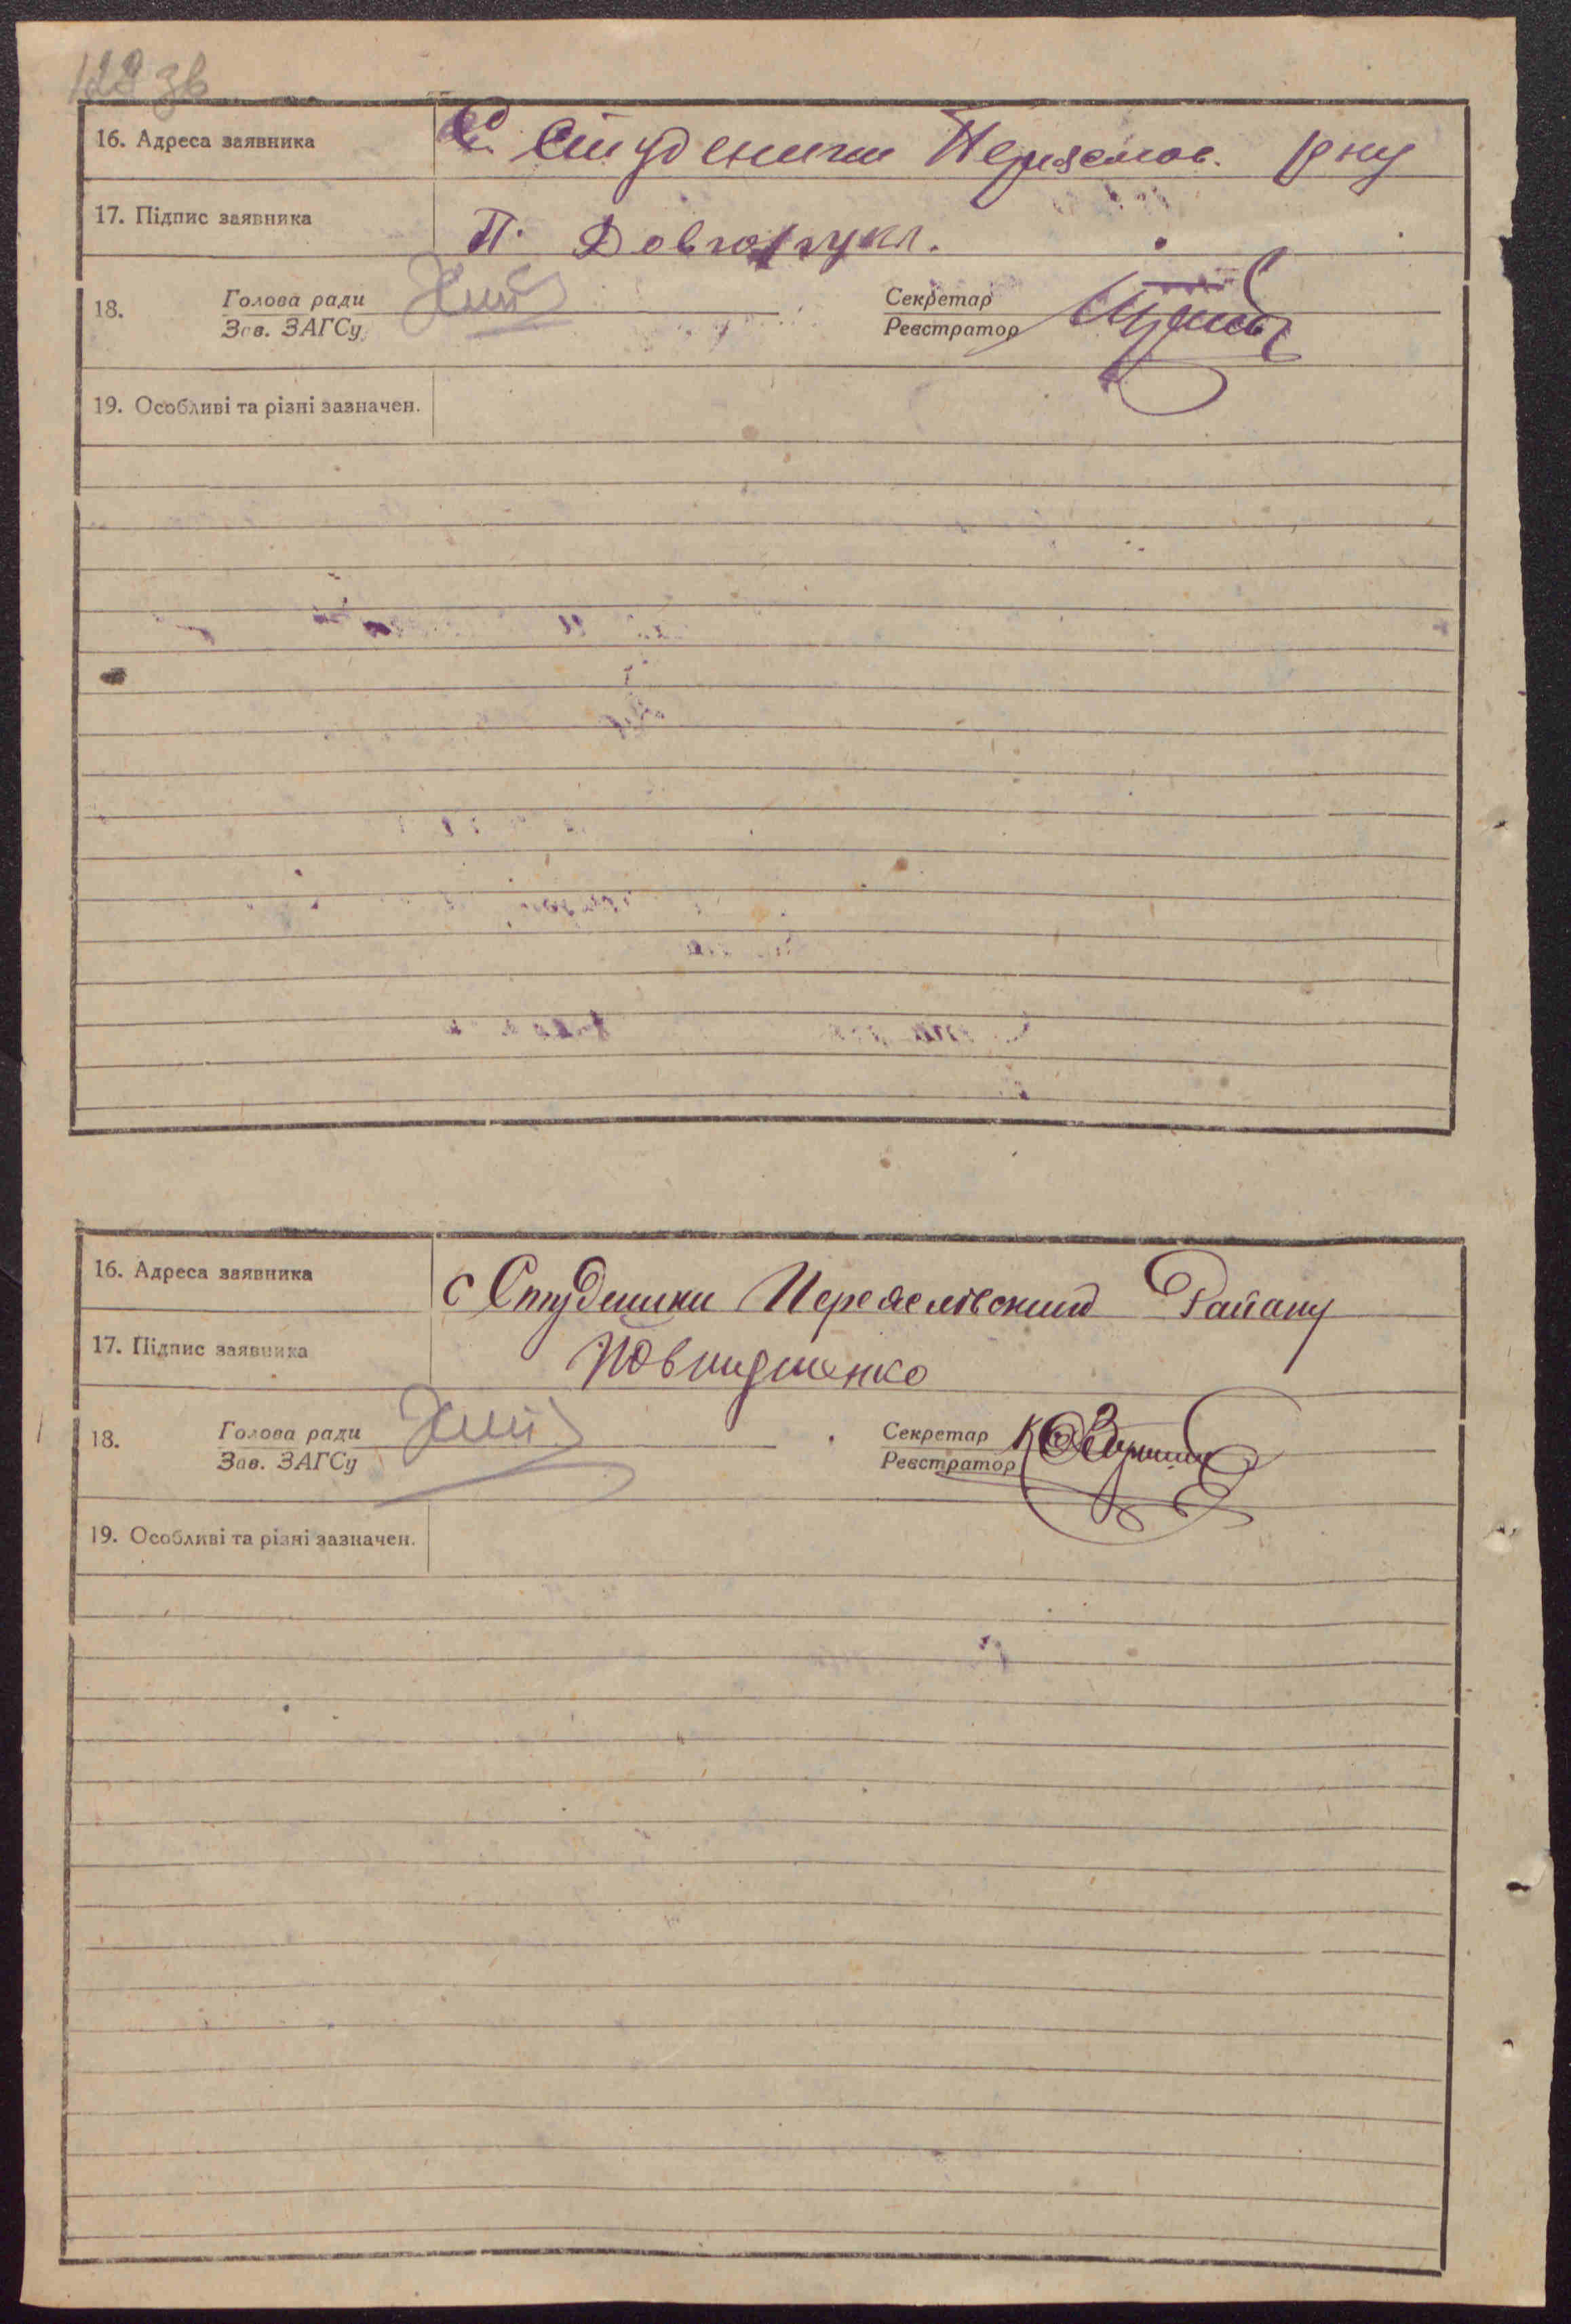 122 зв
16. Адреса заявника С. Студеники Переяслов. рну
17. Підпис заявника П. Довго
18. Голова ради Секретар
Зав. ЗАГСу Реєстратор
19. Особливі та різні зазначен.
16. Адреса заявника с Студеники Переяслівский Району
17. Підпис заявника
18. Голова ради Секретар
Зав. ЗАГСу Реєстратор
19. Особливі та різні зазначен.